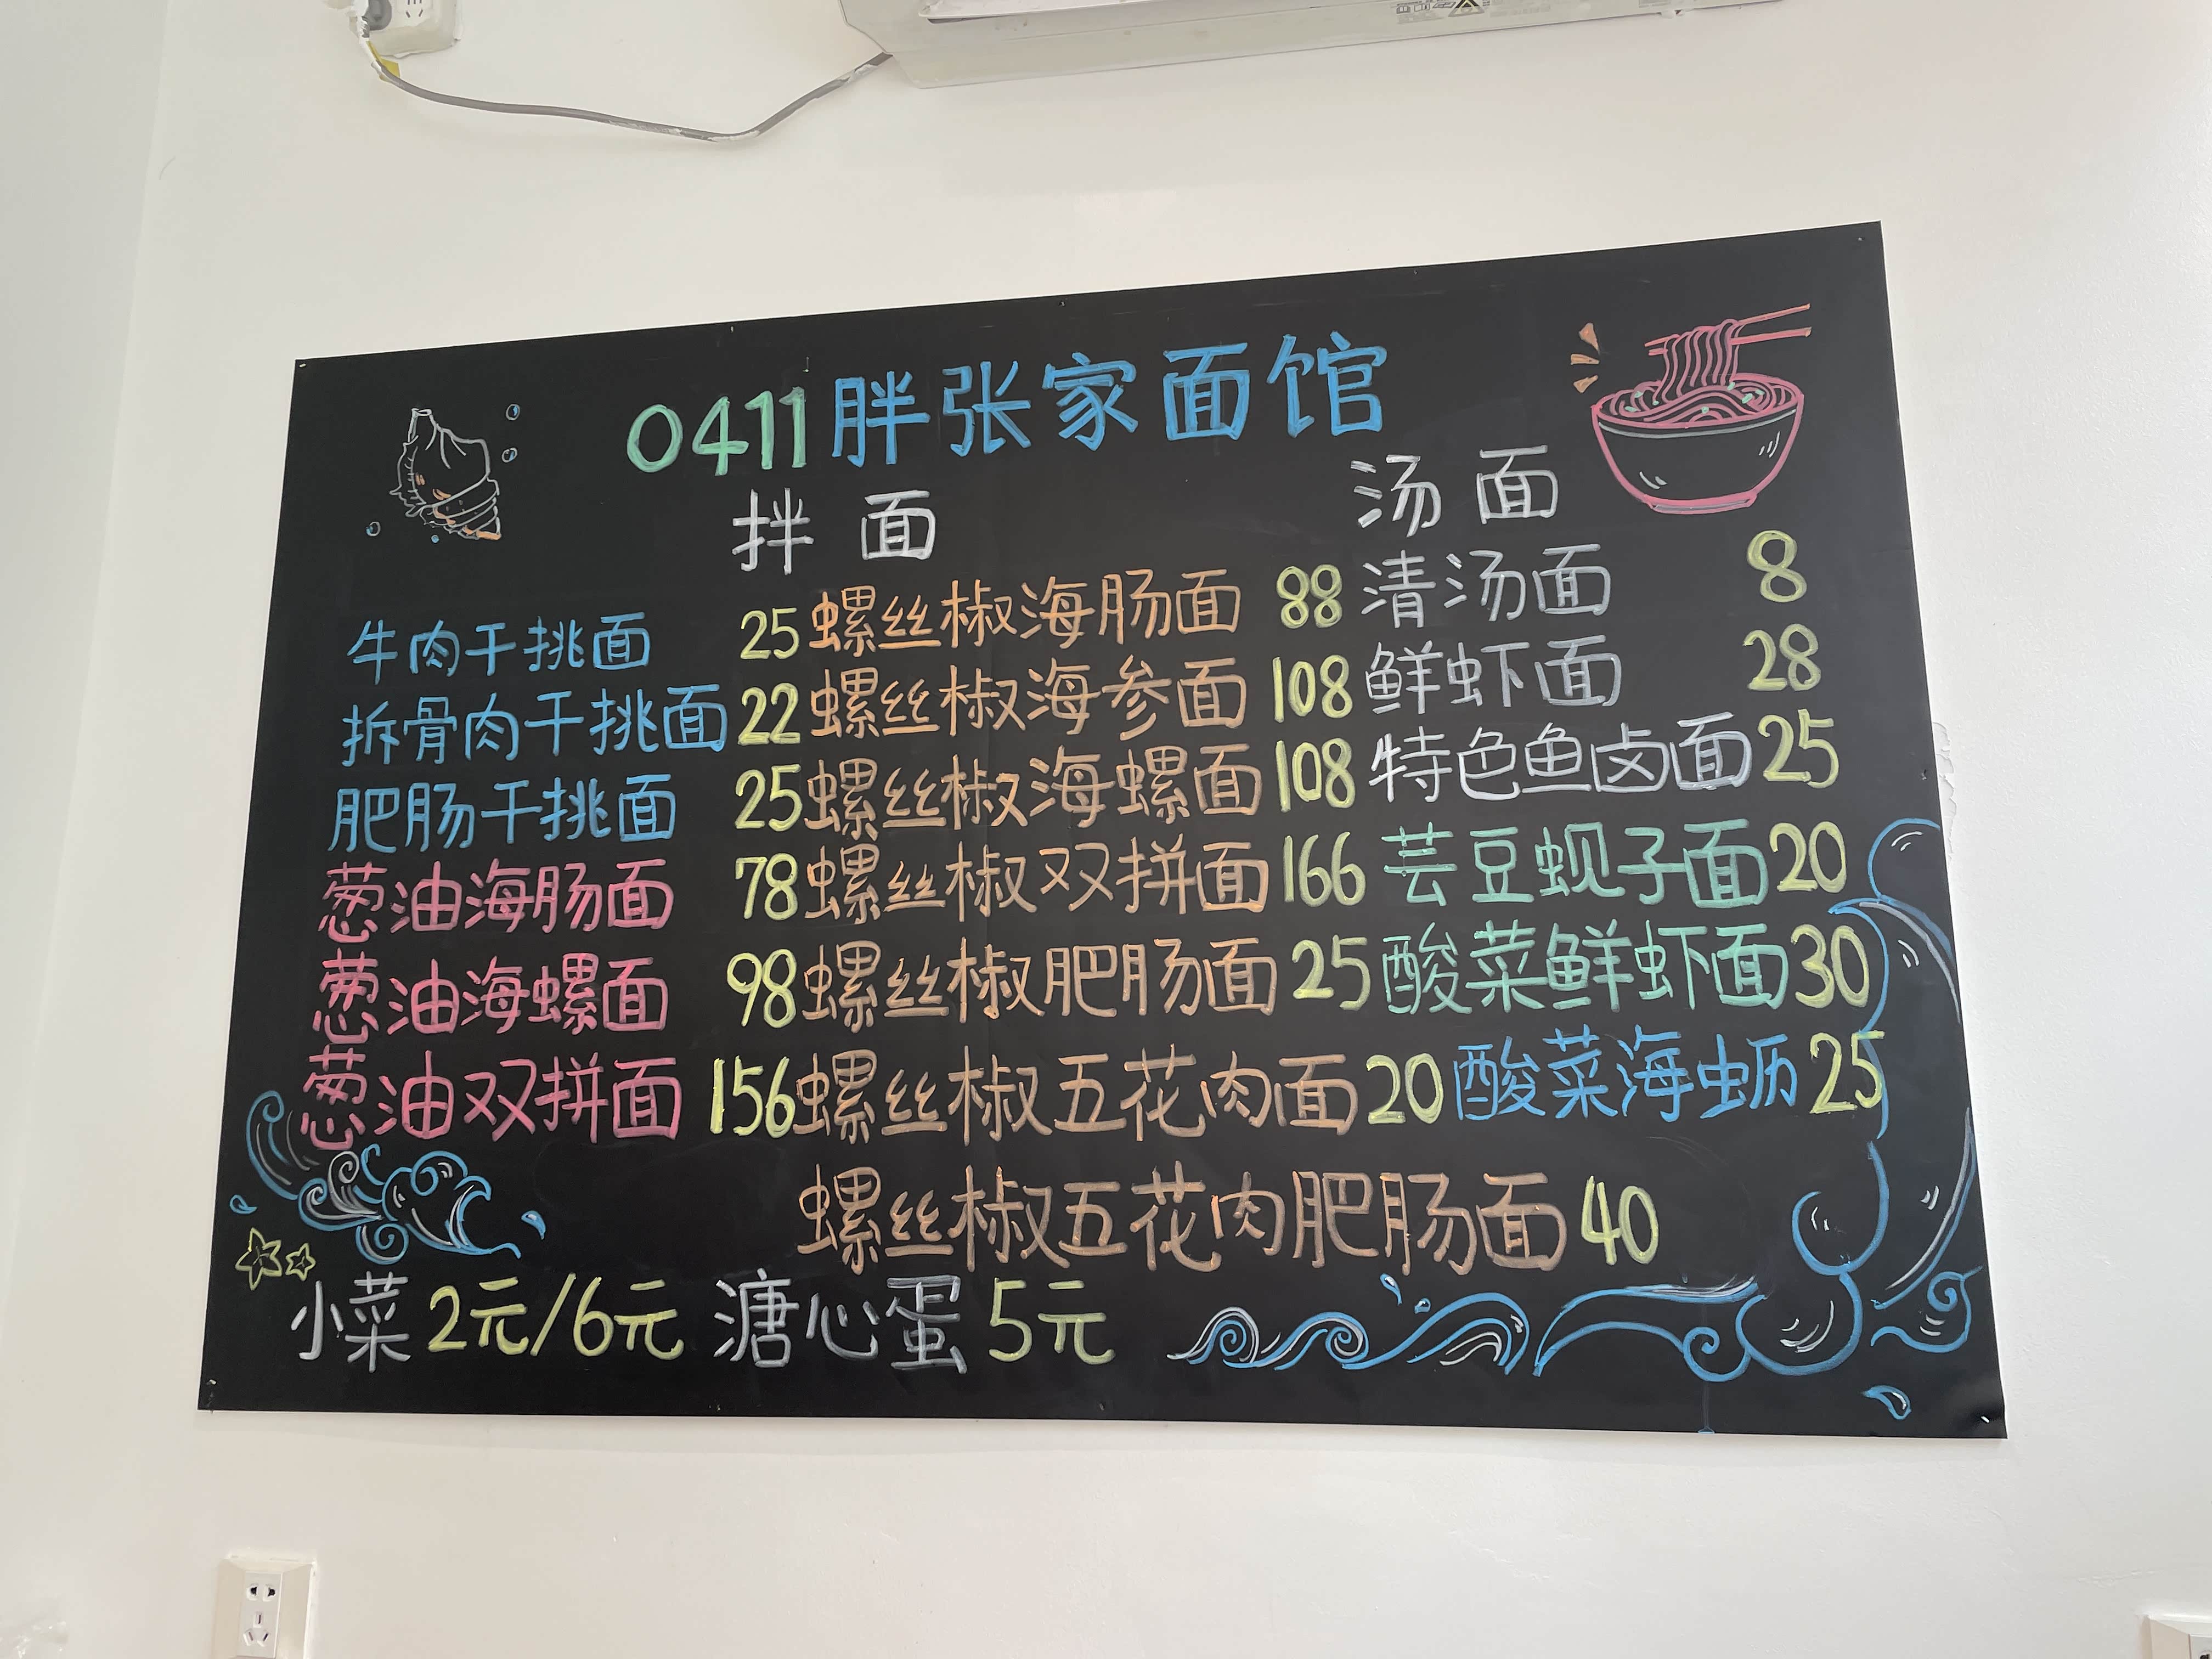 0411胖张家面馆
拌面
汤面
牛肉干挑面 25
拆骨肉干挑面 22
肥肠干挑面 25
葱油海肠面 78
葱油海螺面 98
葱油双拼面 156
螺丝椒海肠面 88
螺丝椒海参面 108
螺丝椒海螺面 108
螺丝椒双拼面 166
螺丝椒肥肠面 25
螺丝椒五花肉面 20
螺丝椒五花肉肥肠面 40
清汤面 8
鲜虾面 28
特色鱼卤面 25
芸豆蚬子面 20
酸菜鲜虾面 30
酸菜海蛎 25
小菜 2元/6元 溏心蛋 5元